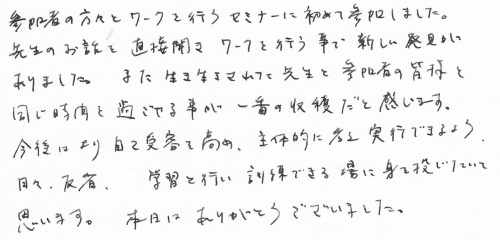 参加者の方々とワークを行うセミナーに初めて参加しました。
先生のお話を直接聞き ワークを行う事で新しい発見が
ありました。 また 生き生きされてる先生と参加者の皆様と
同じ時間を過ごせる事が一番の収穫だと感じます。
今後はより自己受容を高め、主体的に考え実行できるよう、
日々、反省、 学習を行い 訓練できる場に身を投じたいと
思います。 本日はありがとうございました。